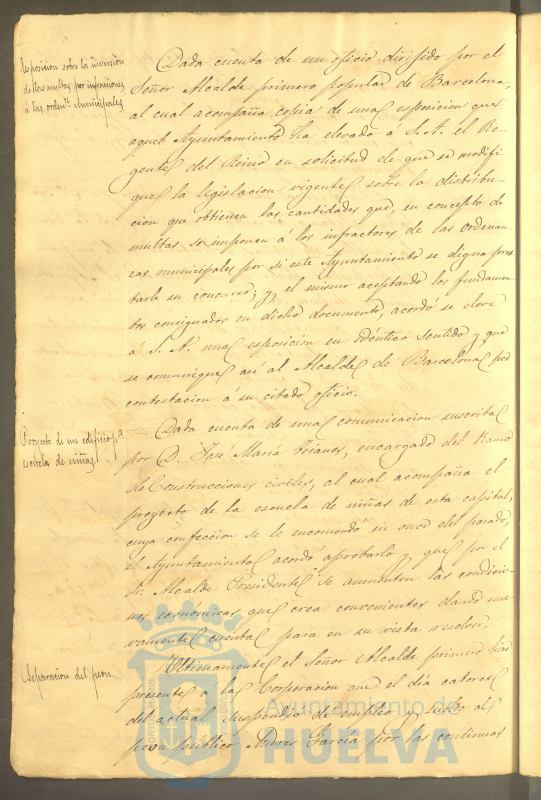 Esposicion sobre la inversion
de las multas por infracciones
á las orden.s Municipales
Dada cuenta de un oficio dirijido por el
Señor Alcalde primero popular de Barcelona,
al cual acompaña copia de una esposicion que
aquel Ayuntamiento ha elevado á S. A. el Re-
gente del Reino en solicitud de que se modifi
que la legislacion vigente sobre la distribu-
cion que obtienen las cantidades que, en concepto de
multas se imponen á los infractores de las ordenan
zas municipales por si este Ayuntamiento se digna pres
tarle su concurso; y, el mismo aceptando los fundamen-
tos consignados en dicho documento, acordó se eleve
á S. A. una esposicion en idéntico sentido y que
se comunique asi al Alcalde de Barcelona por
contestacion á su citado oficio.
Proyecto de un edificio p.a
escuela de niñas.
Dada cuenta de una comunicacion suscrita
por D. Jose Maria encargado del Ramo
de Construcciones civiles, al cual acompaña el
proyecto de la escuela de niñas de esta capital,
cuya confeccion se le encomendó en once del pasado,
el Ayuntamiento acordó aprobarlo y que por el
Sr. Alcalde Presidente se aumenten las condicio-
nes económicas que crea convenientes dando nue-
vamente cuenta para en su vista resolver.
Separacion del peon.
Ultimamente el Señor Alcalde primero hizo
presente á la Corporacion que el dia catorce
del actual suspendió de empleo y sueldo al
peon público Andres Garcia por las continuas
Ayuntamiento de
HUELVA